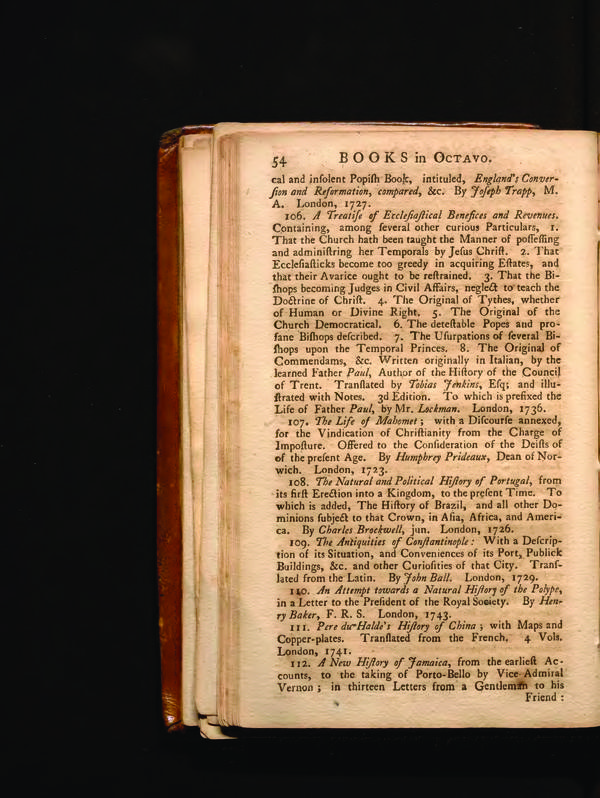 54 BOOKS in OCTAVO.
cal and inſolent Popiſh Book, intituled, England's Conver-
ſion and Reformation, compared, &c. By Joſeph Trapp, M.
A. London, 1727.
106. A Treatiſe of Eccleſiaſtical Benefices and Revenues.
Containing, among ſeveral other curious Particulars, 1.
That the Church hath been taught the Manner of poſſeſſing
and adminiſtring her Temporals by Jeſus Chriſt. 2. That
Eccleſiaſticks become too greedy in acquiring Eſtates, and
that their Avarice ought to be reſtrained. 3. That the Bi-
ſhops becoming Judges in Civil Affairs, neglect to teach the
Doctrine of Chriſt. 4. The Original of Tythes, whether
of Human or Divine Right. 5. The Original of the
Church Democratical. 6. The deteſtable Popes and pro-
fane Biſhops deſcribed. 7. The Uſurpations of ſeveral Bi-
ſhops upon the Temporal Princes. 8. The Original of
Commendams, &c. Written originally in Italian, by the
learned Father Paul, Author of the Hiſtory of the Council
of Trent. Tranſlated by Tobias Jenkins, Eſq; and illu-
ſtrated with Notes. 3d Edition. To which is prefixed the
Life of Father Paul, by Mr. Lockman. London, 1736.
107. The Life of Mahomet; with a Diſcourſe annexed,
for the Vindication of Chriſtianity from the Charge of
Impoſture. Offered to the Conſideration of the Deiſts of
of the preſent Age. By Humphrey Prideaux, Dean of Nor-
wich. London, 1723.
108. The Natural and Political Hiſtory of Portugal, from
its firſt Erection into a Kingdom, to the preſent Time. To
which is added, The Hiſtory of Brazil, and all other Do-
minions ſubject to that Crown, in Aſia, Africa, and Ameri-
ca. By Charles Brockwell, jun. London, 1726.
109. The Antiquities of Conſtantinople: With a Deſcrip-
tion of its Situation, and Conveniences of its Port, Publick
Buildings, &c. and other Curioſities of that City. Tranſ-
lated from the Latin. By John Ball. London, 1729.
110. An Attempt towards a Natural Hiſtory of the Polype,
in a Letter to the Preſident of the Royal Society. By Hen-
ry Baker, F. R. S. London, 1743.
111. Pere du Halde's Hiſtory of China; with Maps and
Copper-plates. Tranſlated from the French. 4 Vols.
London, 1741.
112. A New Hiſtory of Jamaica, from the earlieſt Ac-
counts, to the taking of Porto-Bello by Vice Admiral
Vernon; in thirteen Letters from a Gentleman to his
Friend: